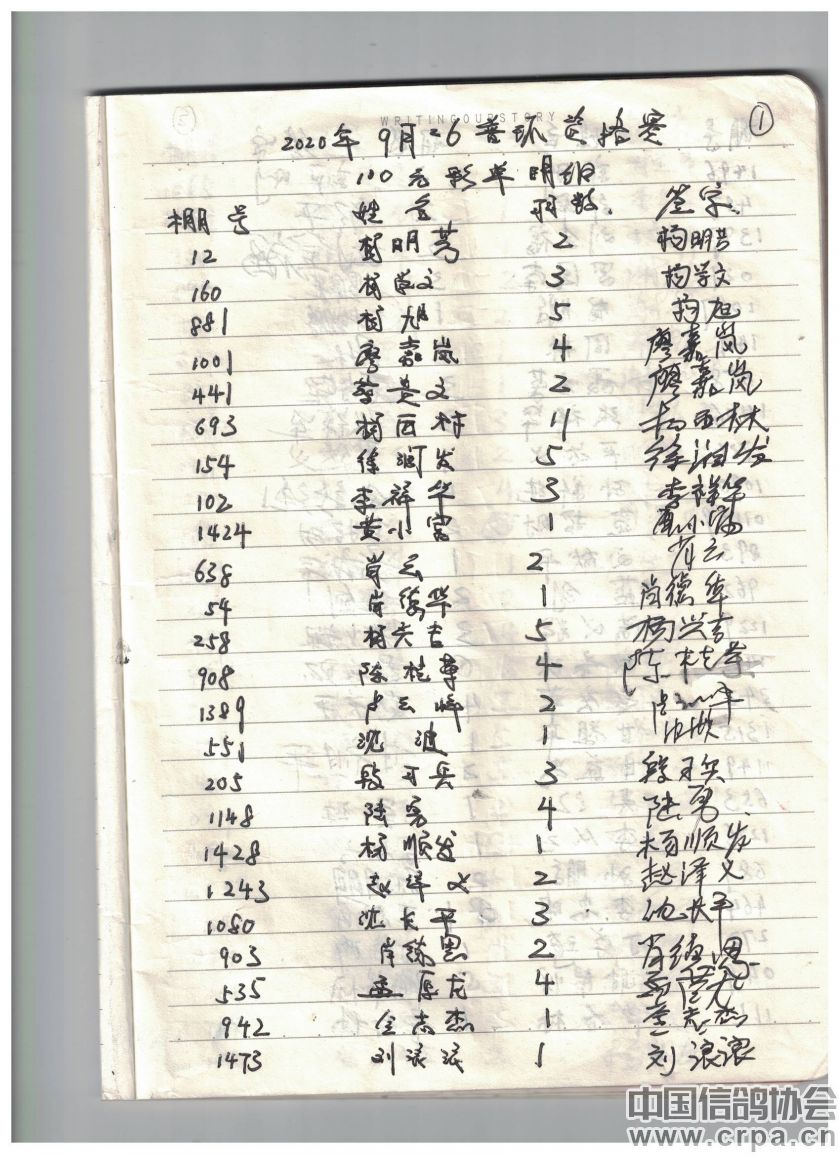 WRITING OUR STORY
①
2020年9月26普环资格赛
100元彩单明细
棚号 姓名 羽数. 签字.
12 杨明芳 2 杨明芳
160 杨学文 3 杨学文
881 杨旭 5 杨旭
1001 廖嘉岚 4 廖嘉岚
441 2 廖嘉岚
693 杨西林 11 杨西林
154 徐润发 5 徐润发
102 李祥华 3 李祥华
1424 黄小富 1
638 肖云 2 肖云
54 肖德华 1 肖德华
258 杨兴吉 5 杨兴吉
908 陈桂萍 4 陈桂萍
1389 卢云峰 2
551 沈波 1
205 段开兵 3
1148 陆勇 4 陆勇
1428 杨顺发 1 杨顺发
1243 赵泽义 2 赵泽义
1080 沈长平 3 沈长平
903 2
535 4
942 金志杰 1
1473 刘滚滚 1 刘滚滚
中国信鸽协会
www.crpa.cn